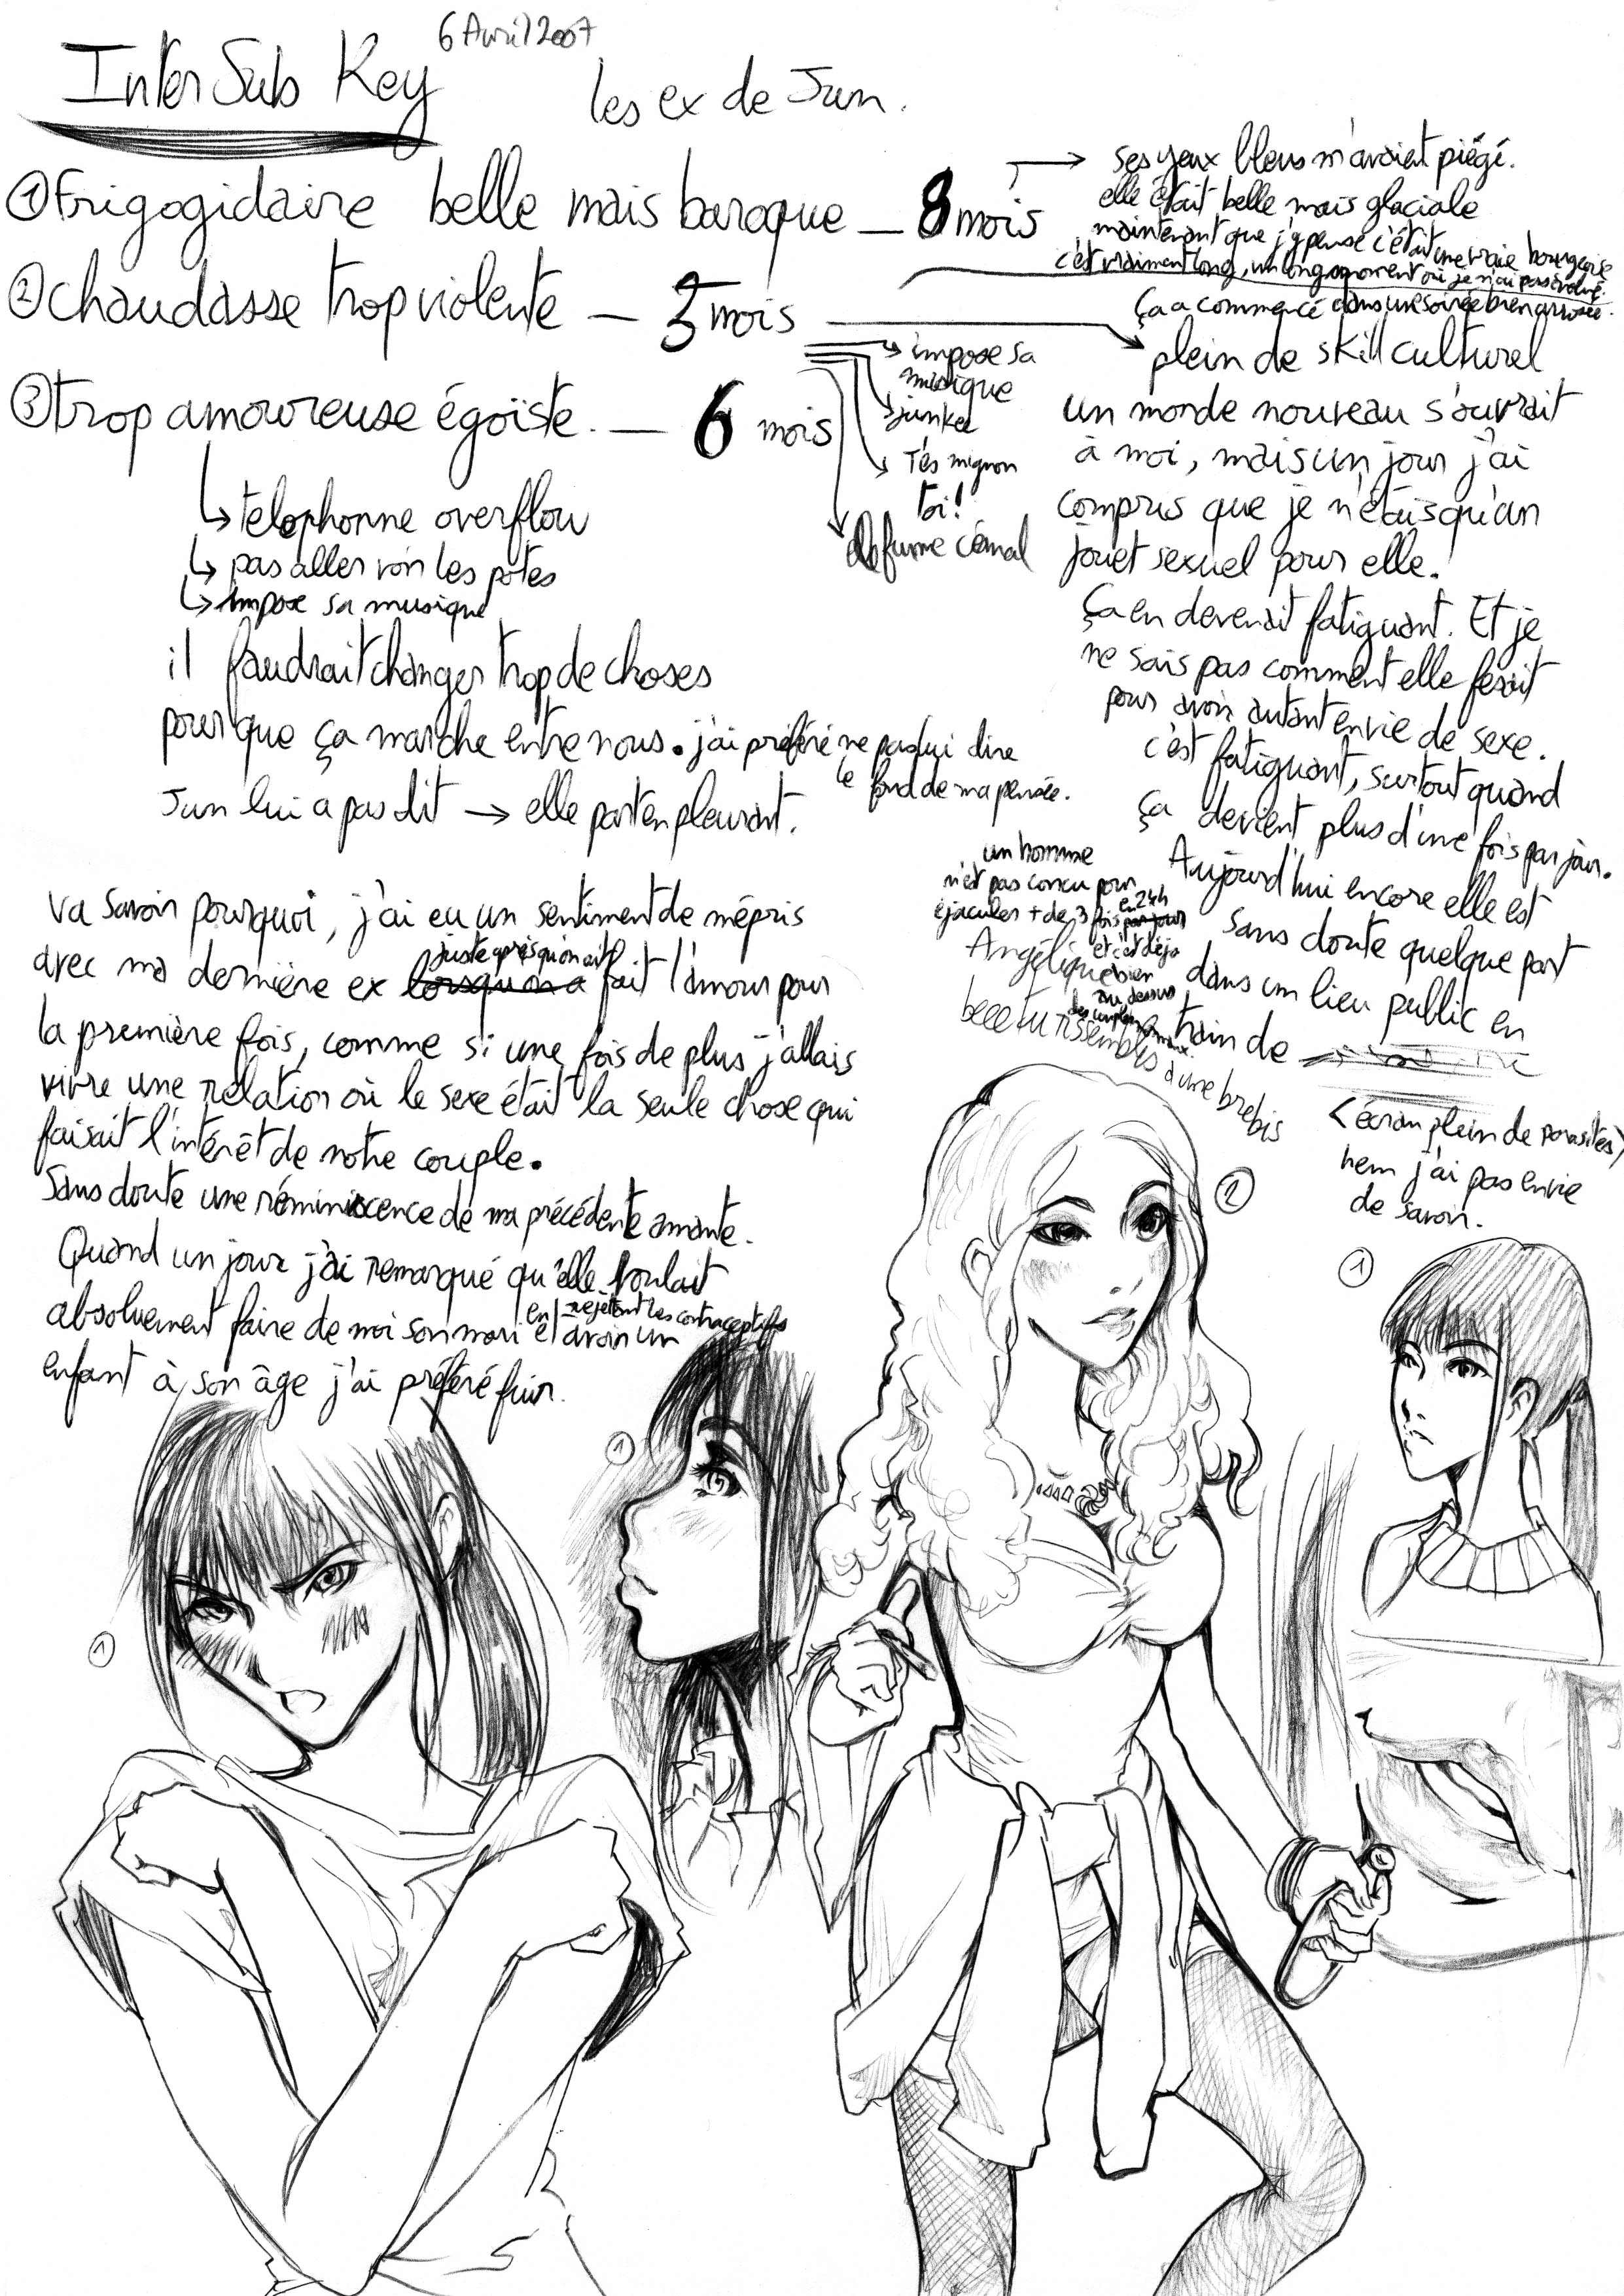 6 Avril 2007
Inter Sub Key
les ex de Jun.
① Frigogidaire belle mais baroque — 8 mois
② chaudasse trop violente — 3 mois
③ trop amoureuse égoïste. — 6 mois
→ ses yeux bleus m'avaient piégé.
elle était belle mais glaciale
maintenant que j'y pense c'était une vraie bourgeoise
c'est vraiment long, un long moment où je n'ai pas évolué.
ça a commencé dans une soirée bien arrosée.
plein de skill culturel
un monde nouveau s'ouvrait
à moi, mais un jour j'ai
compris que je n'étais qu'un
jouet sexuel pour elle.
Ça en devenait fatiguant. Et je
ne sais pas comment elle fesait
pour avoir autant envie de sexe.
c'est fatiguant, surtout quand
ça devient plus d'une fois par jour.
Aujourd'hui encore elle est
sans doute quelque part
dans un lieu public en
train de
<écran plein de parasites>
hem j'ai pas envie
de savoir.
→ impose sa
musique
→ junkee
→ T'es mignon
toi!
fume c'é mal
↳ telephonne overflow
↳ pas aller voir les potes
↳ impose sa musique
il faudrait changer trop de choses
pour que ça marche entre nous. j'ai préféré ne pas lui dire
le fond de ma pensée.
Jun lui a pas dit → elle part en pleurant.
un homme
n'est pas concu pour
éjaculer + de 3 fois par jour
en 24h
et c'est déjà
bien
au dessus
Angélique
belle tu ressembles
à une brebis
va savoir pourquoi, j'ai eu un sentiment de mépris
avec ma dernière ex lorsqu'on a fait l'amour pour
juste après qu'on ait
la première fois, comme si une fois de plus j'allais
vivre une relation où le sexe était la seule chose qui
faisait l'intérêt de notre couple.
Sans doute une réminiscence de ma précédente amante.
Quand un jour j'ai remarqué qu'elle voulait
absoluement faire de moi son mari et avoir un
en rejetant les contraceptifs
enfant à son âge j'ai préféré fuir.
②
①
①
①